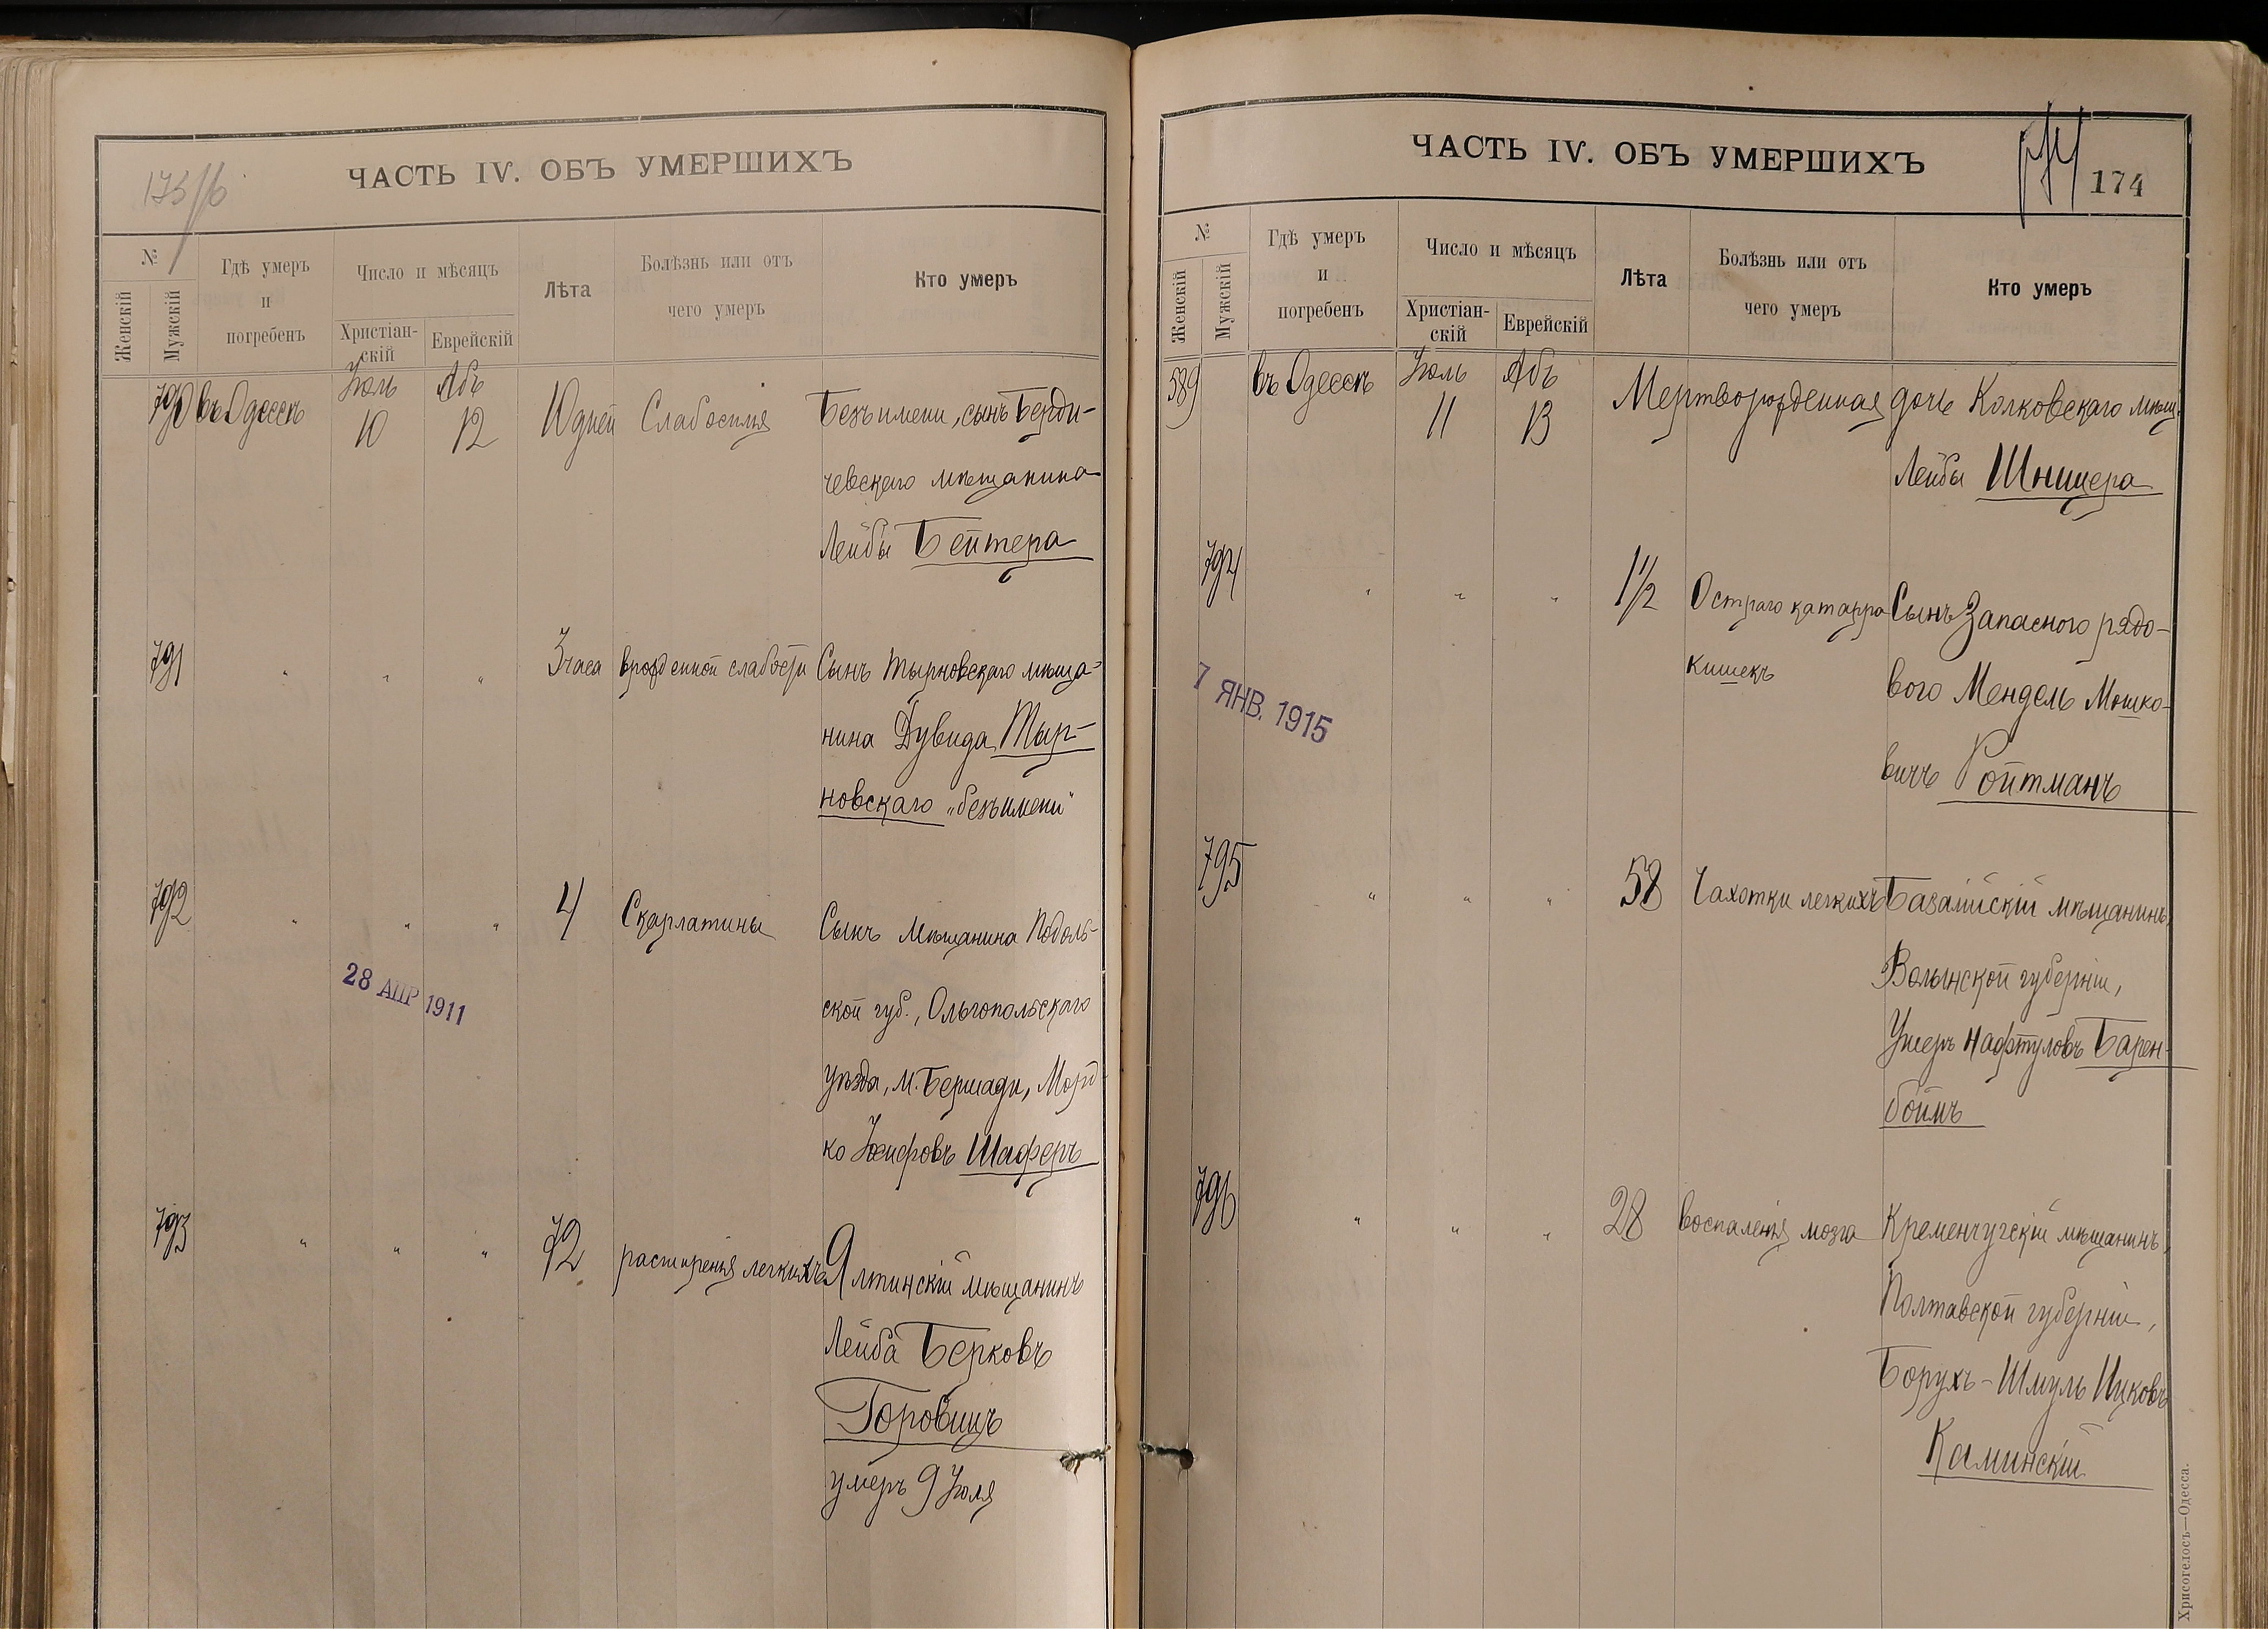 175/б
ЧАСТЬ IV. ОБЪ УМЕРШИХЪ
№
Женскій
Мужскій
Гдѣ умеръ
и
погребенъ
Число и мѣсяцъ
Христіан-
скій
Еврейскій
Лѣта
Болѣзнь или отъ
чего умеръ
Кто умеръ
790 въ Одессѣ Іюль 10 Абъ 12 10 дней Слабосилія Безъимени, сынъ Берди-
чевскаго мѣщанина
Лейбы Бейтера
791 " " " 3 часа врожденной слабости Сынъ Тырновскаго мѣща-
нина Дувида Тыр-
новскаго „безъимени"
792 " " " 4 Скарлатины Сынъ мѣщанина Подоль-
28 АПР 1911
ской губ., Ольгопольскаго
уѣзда, м. Бершади, Морд-
ко Іосифовъ Шаферъ
793 " " " 72 расширенія легкихъ Ялтинскій мѣщанинъ
Лейба Берковъ
Горовицъ
умеръ 9 Іюля
ЧАСТЬ IV. ОБЪ УМЕРШИХЪ
174
№
Женскій
Мужскій
Гдѣ умеръ
и
погребенъ
Число и мѣсяцъ
Христіан-
скій
Еврейскій
Лѣта
Болѣзнь или отъ
чего умеръ
Кто умеръ
589 въ Одессѣ Іюль 11 Абъ 13 Мертворожденная дочь Колковскаго мѣщ.
Лейбы Шницера
794 " " " 1 1/2 Остраго катарра Сынъ Запасного рядо-
кишекъ вого Мендель Мошко-
7 ЯНВ. 1915
вичъ Ройтманъ
795 " " " 58 Чахотки легкихъ Базалійскій мѣщанинъ,
Волынской губерніи,
Ушеръ Нафтуловъ Барен-
боймъ
796 " " " 28 воспаленія мозга Кременчугскій мѣщанинъ,
Полтавской губерніи,
Борухъ-Шмуль Ицковъ
Каминскій
Хрисогелосъ.—Одесса.